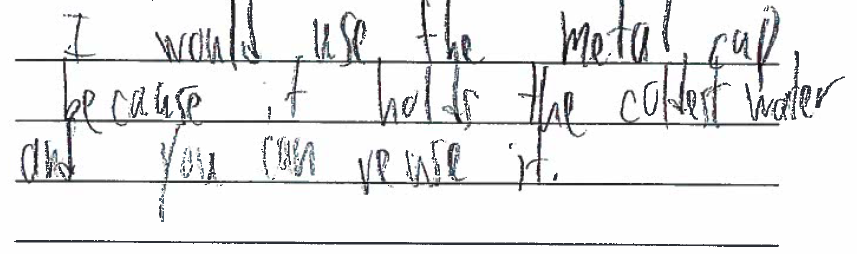 I would use the metal cup
because it holds the coldest water
and you can reuse it.